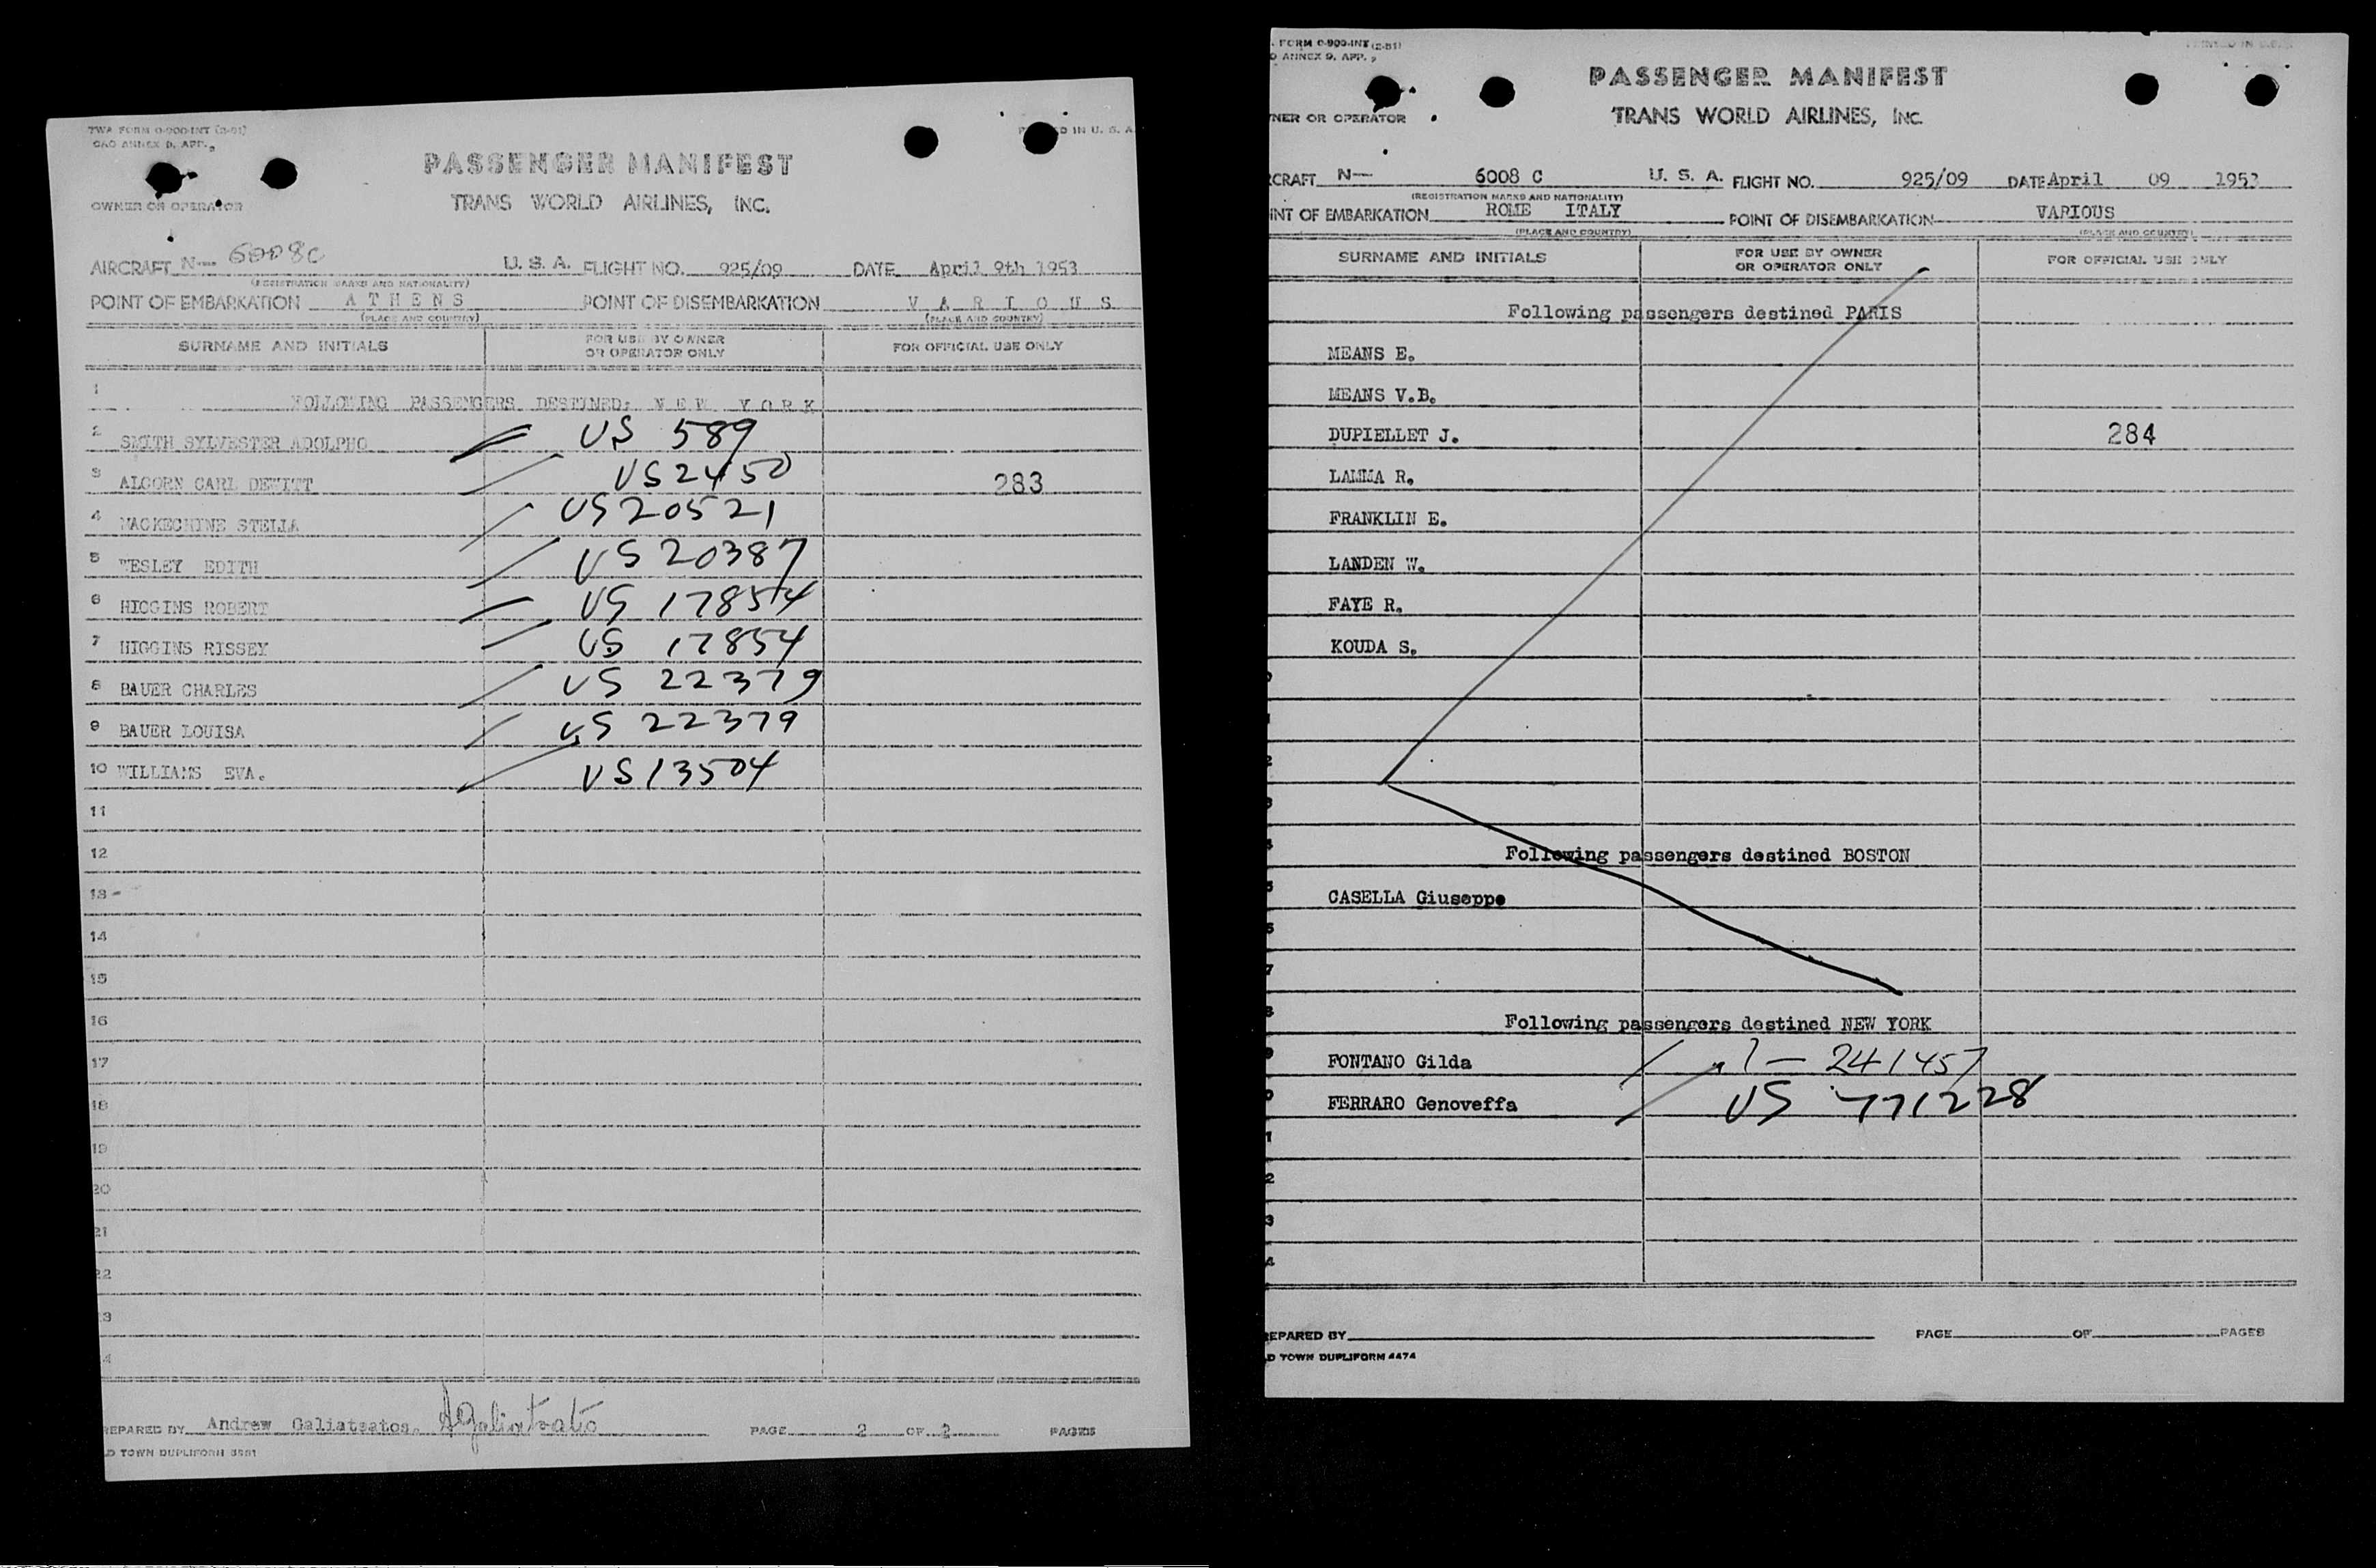 TWA FORM 0-900-INT (2-51)
CAO ANNEX 9, APP.,
IN U. S. A.
PASSENGER MANIFEST
OWNER OR OPERATOR
TRANS WORLD AIRLINES, INC.
AIRCRAFT N— 6008C U. S. A. FLIGHT NO. 925/09 DATE April 9th 1953
(REGISTRATION MARKS AND NATIONALITY)
POINT OF EMBARKATION A T H E N S POINT OF DISEMBARKATION V A R I O U S
(PLACE AND COUNTRY) (PLACE AND COUNTRY)
SURNAME AND INITIALS FOR USE BY OWNER OR OPERATOR ONLY FOR OFFICIAL USE ONLY
1 FOLLOWING PASSENGERS DESTINED: N E W Y O R K
2 SMITH SYLVESTER ADOLPHO US 589
3 ALCORN CARL DEWITT US 2450 283
4 MACKECHINE STELLA US 20521
5 WESLEY EDITH US 20387
6 HIGGINS ROBERT US 17854
7 HIGGINS RISSEY US 17854
8 BAUER CHARLES US 22379
9 BAUER LOUISA US 22379
10 WILLIAMS EVA. US 13504
11
12
13
14
15
16
17
18
19
20
21
22
3
4
REPARED BY Andrew Galiatsatos. AGaliatsatos PAGE 2 OF 2 PAGES
D TOWN DUPLIFORM 3581
. FORM 0-900-INT (2-51)
O ANNEX 9, APP. ,
PASSENGER MANIFEST
NER OR OPERATOR
TRANS WORLD AIRLINES, INC.
CRAFT N— 6008 C U. S. A. FLIGHT NO. 925/09 DATE April 09 1953
(REGISTRATION MARKS AND NATIONALITY)
INT OF EMBARKATION ROME ITALY POINT OF DISEMBARKATION VARIOUS
(PLACE AND COUNTRY) (PLACE AND COUNTRY)
SURNAME AND INITIALS FOR USE BY OWNER OR OPERATOR ONLY FOR OFFICIAL USE ONLY
Following passengers destined PARIS
MEANS E.
MEANS V.B.
DUPIELLET J. 284
LAMMA R.
FRANKLIN E.
LANDEN W.
FAYE R.
KOUDA S.
Following passengers destined BOSTON
CASELLA Giuseppe
Following passengers destined NEW YORK
FONTANO Gilda 1— 241457
FERRARO Genoveffa US 771228
EPARED BY PAGE OF PAGES
D TOWN DUPLIFORM 4474